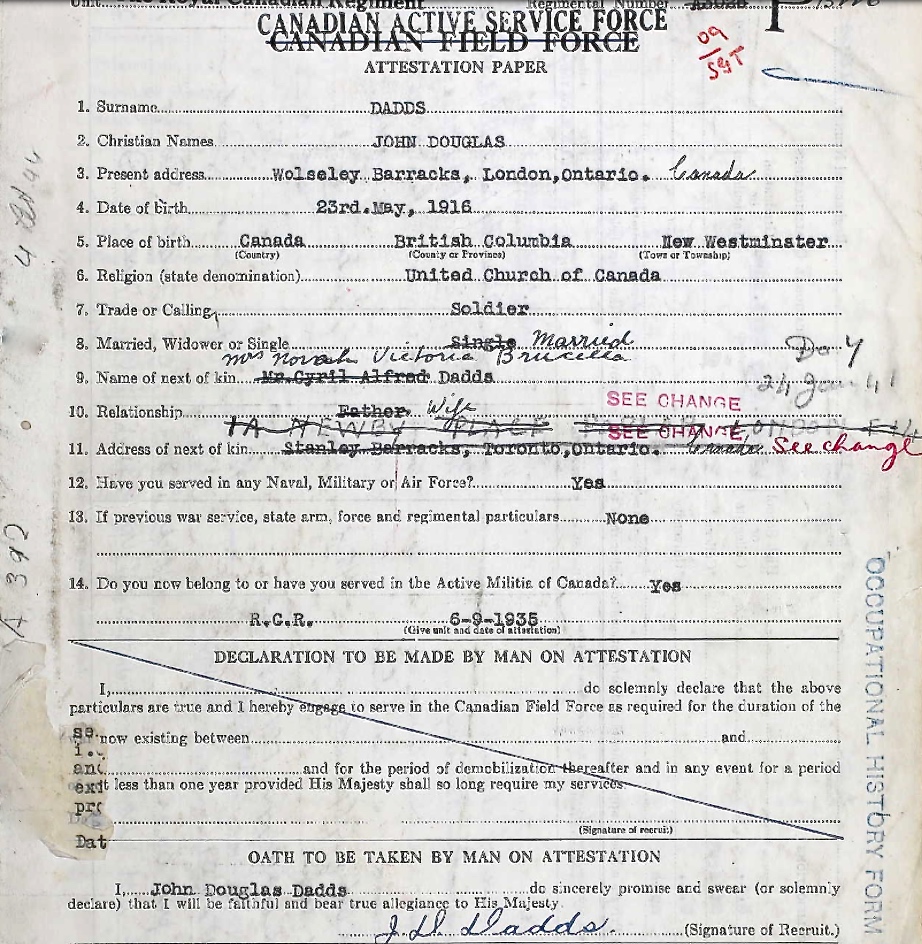 The Royal Canadian Regiment Regimental Number
CANADIAN ACTIVE SERVICE FORCE
CANADIAN FIELD FORCE
09
/
SGT
ATTESTATION PAPER
1. Surname DADDS
2. Christian Names JOHN DOUGLAS
3. Present address Wolseley Barracks, London,Ontario. Canada
4. Date of birth 23rd.May, 1916
5. Place of birth Canada British Columbia New Westminater
(Country) (County or Province) (Town or Township)
6. Religion (state denomination) United Church of Canada
7. Trade or Calling Soldier
8. Married, Widower or Single Single Married
Mrs Norah Victoria Brucella
9. Name of next of kin Mr.Cyril Alfred Dadds
24 Jan 41
10. Relationship Father. Wife SEE CHANGE
1A NEWBY PLACE SEE CHANGE LONDON E14
11. Address of next of kin Stanley Barracks, Toronto,Ontario. Canada See change
12. Have you served in any Naval, Military or Air Force? Yes
13. If previous war service, state arm, force and regimental particulars None
14. Do you now belong to or have you served in the Active Militia of Canada? Yes
R.C.R. 6-9-1935
(Give unit and date of attestation)
DECLARATION TO BE MADE BY MAN ON ATTESTATION
I, do solemnly declare that the above
particulars are true and I hereby engage to serve in the Canadian Field Force as required for the duration of the
se
now existing between and
i
and and for the period of demobilization thereafter and in any event for a period
exi t less than one year provided His Majesty shall so long require my services
pro
(Signature of recruit)
Dat
OATH TO BE TAKEN BY MAN ON ATTESTATION
I, John Douglas Dadds do sincerely promise and swear (or solemnly
declare) that I will be faithful and bear true allegiance to His Majesty
J D Dadds. (Signature of Recruit.)
OCCUPATIONAL HISTORY FORM
A 392